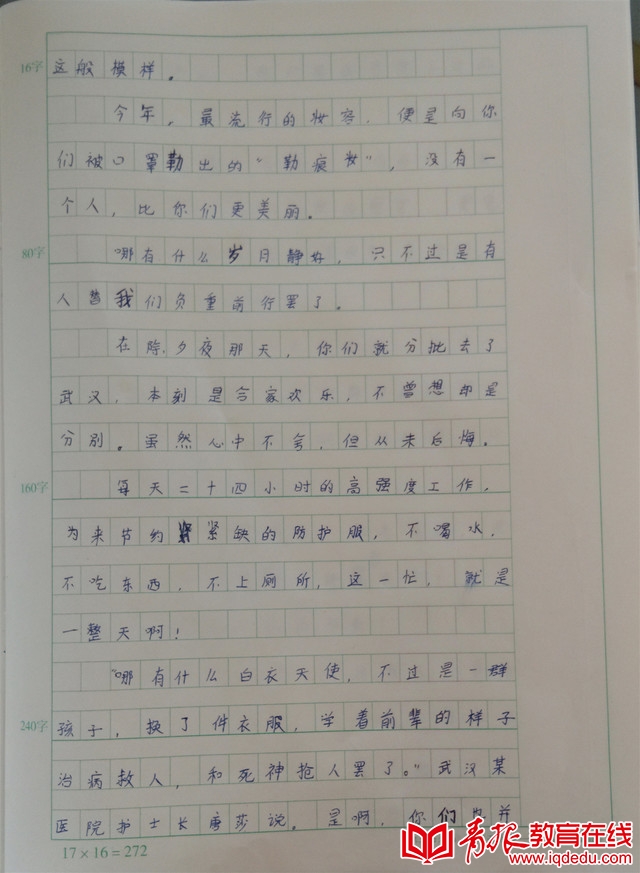 16字
这般模样。
今年，最流行的妆容，便是向你
们被口罩勒出的“勒痕妆”，没有一
个人，比你们更美丽。
80字
哪有什么岁月静好，只不过是有
人替我们负重前行罢了。
在除夕夜那天，你们就分批去了
武汉，本刻是合家欢乐，不曾想却是
分别。虽然心中不舍，但从未后悔。
160字
每天二十四小时的高强度工作，
为来节约紧缺的防护服，不喝水，
不吃东西，不上厕所，这一忙，就是
一整天啊！
“哪有什么白衣天使，不过是一群
240字
孩子，换了件衣服，学着前辈的样子
治病救人，和死神抢人罢了。”武汉某
医院护士长唐莎说。是啊，你们也并
17×16=272
青报教育在线
www.iqdedu.com